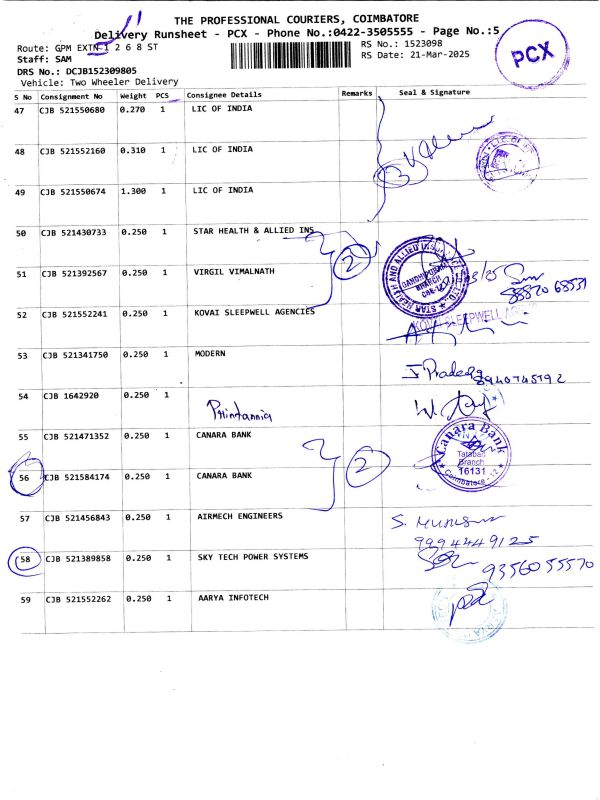 THE PROFESSIONAL COURIERS, COIMBATORE
Delivery Runsheet - PCX - Phone No.:0422-3505555 - Page No.:5
Route: GPM EXTN-1 2 6 8 ST
RS No.: 1523098
Staff: SAM
RS Date: 21-Mar-2025
DRS No.: DCJB152309805
Vehicle: Two Wheeler Delivery
PCX
S No Consignment No Weight PCS Consignee Details Remarks Seal & Signature
47 CJB 521550680 0.270 1 LIC OF INDIA
48 CJB 521552160 0.310 1 LIC OF INDIA
3
49 CJB 521550674 1.300 1 LIC OF INDIA
50 CJB 521430733 0.250 1 STAR HEALTH & ALLIED INS
2
STAR HEALTH AND ALLIED INSURANCE
GANDHIPURAM
BRANCH
CBE-12
51 CJB 521392567 0.250 1 VIRGIL VIMALNATH
88870 68531
52 CJB 521552241 0.250 1 KOVAI SLEEPWELL AGENCIES
KOVAI SLEEPWELL AGEN
53 CJB 521341750 0.250 1 MODERN
J Pradeep
8940745192
54 CJB 1642920 0.250 1 Printannia
55 CJB 521471352 0.250 1 CANARA BANK
2
Canara Bank
Tatabad
Branch
16131
Coimbatore - 12
56 CJB 521584174 0.250 1 CANARA BANK
57 CJB 521456843 0.250 1 AIRMECH ENGINEERS
S. Murugan
9994449125
58 CJB 521389858 0.250 1 SKY TECH POWER SYSTEMS
9356055570
59 CJB 521552262 0.250 1 AARYA INFOTECH